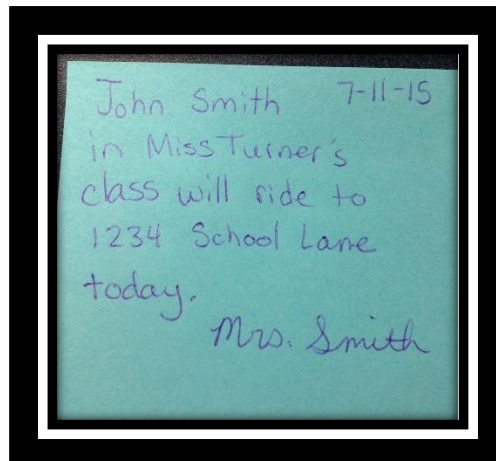 John Smith 7-11-15
in Miss Turner's
class will ride to
1234 School Lane
today.
Mrs. Smith